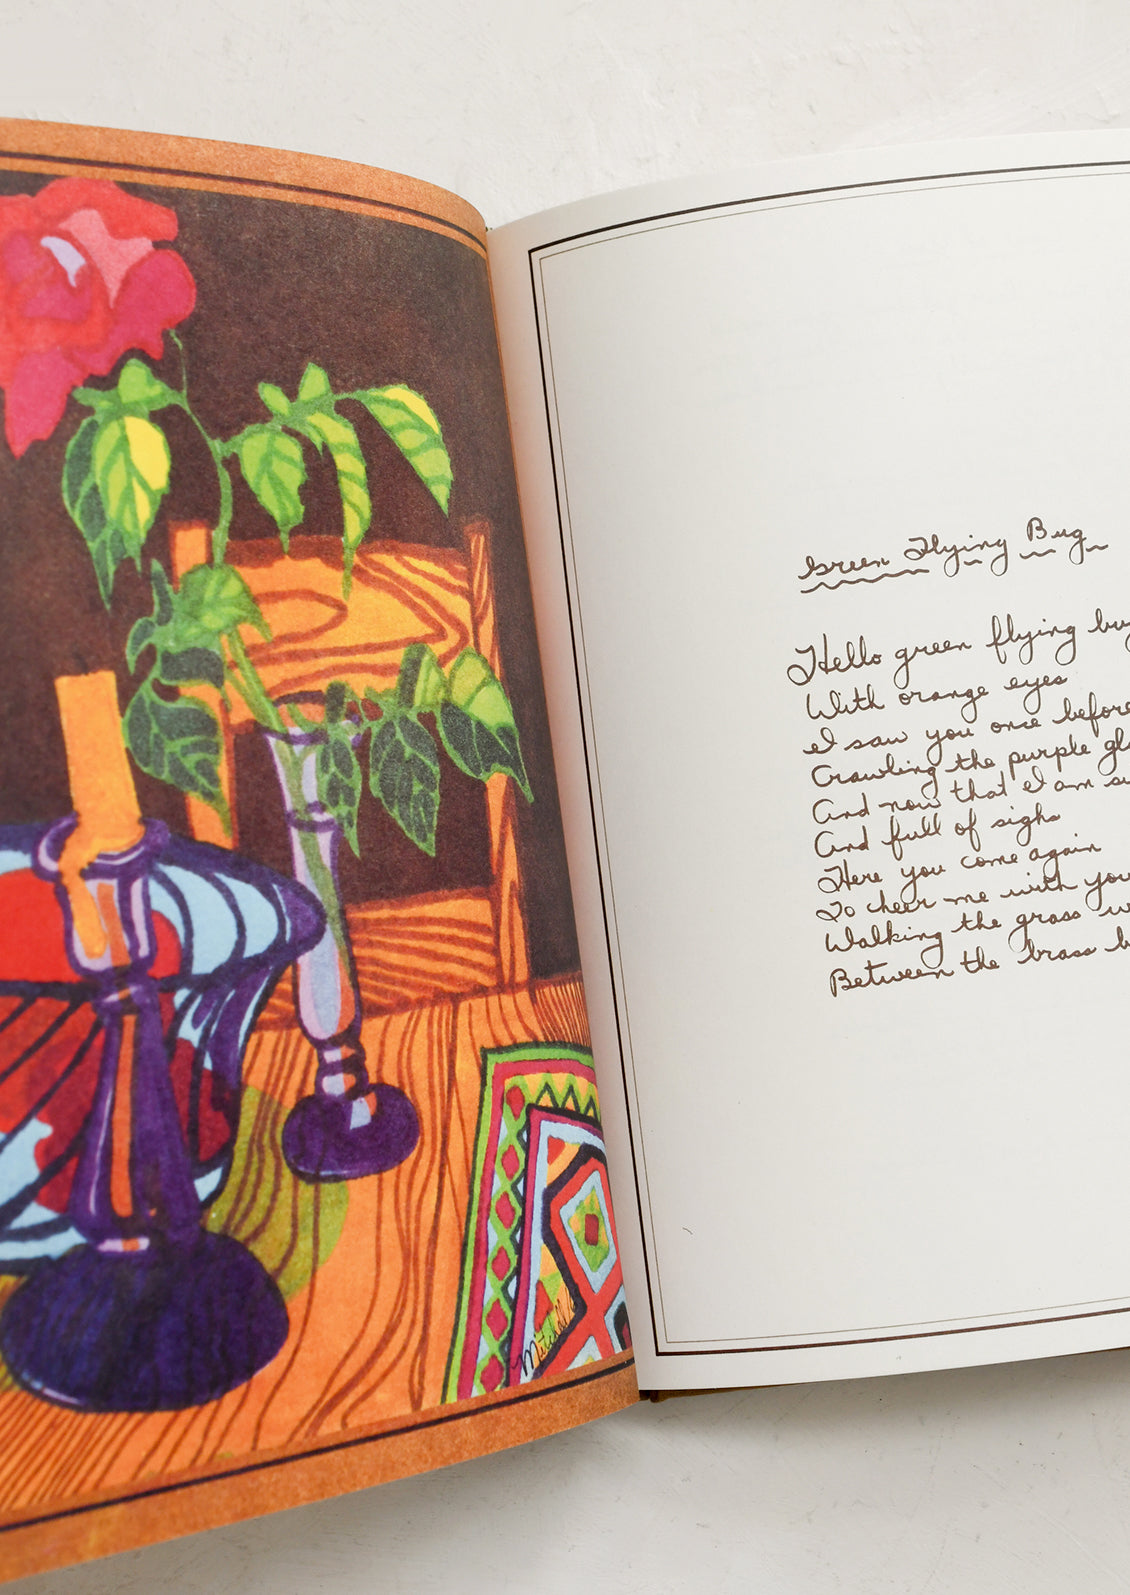 Mitchell
Green Flying Bug
Hello green flying bug
With orange eyes
I saw you once before
Crawling the purple gl
And now that I am su
And full of sighs
Here you come again
To cheer me with you
Walking the grass w
Between the brass b